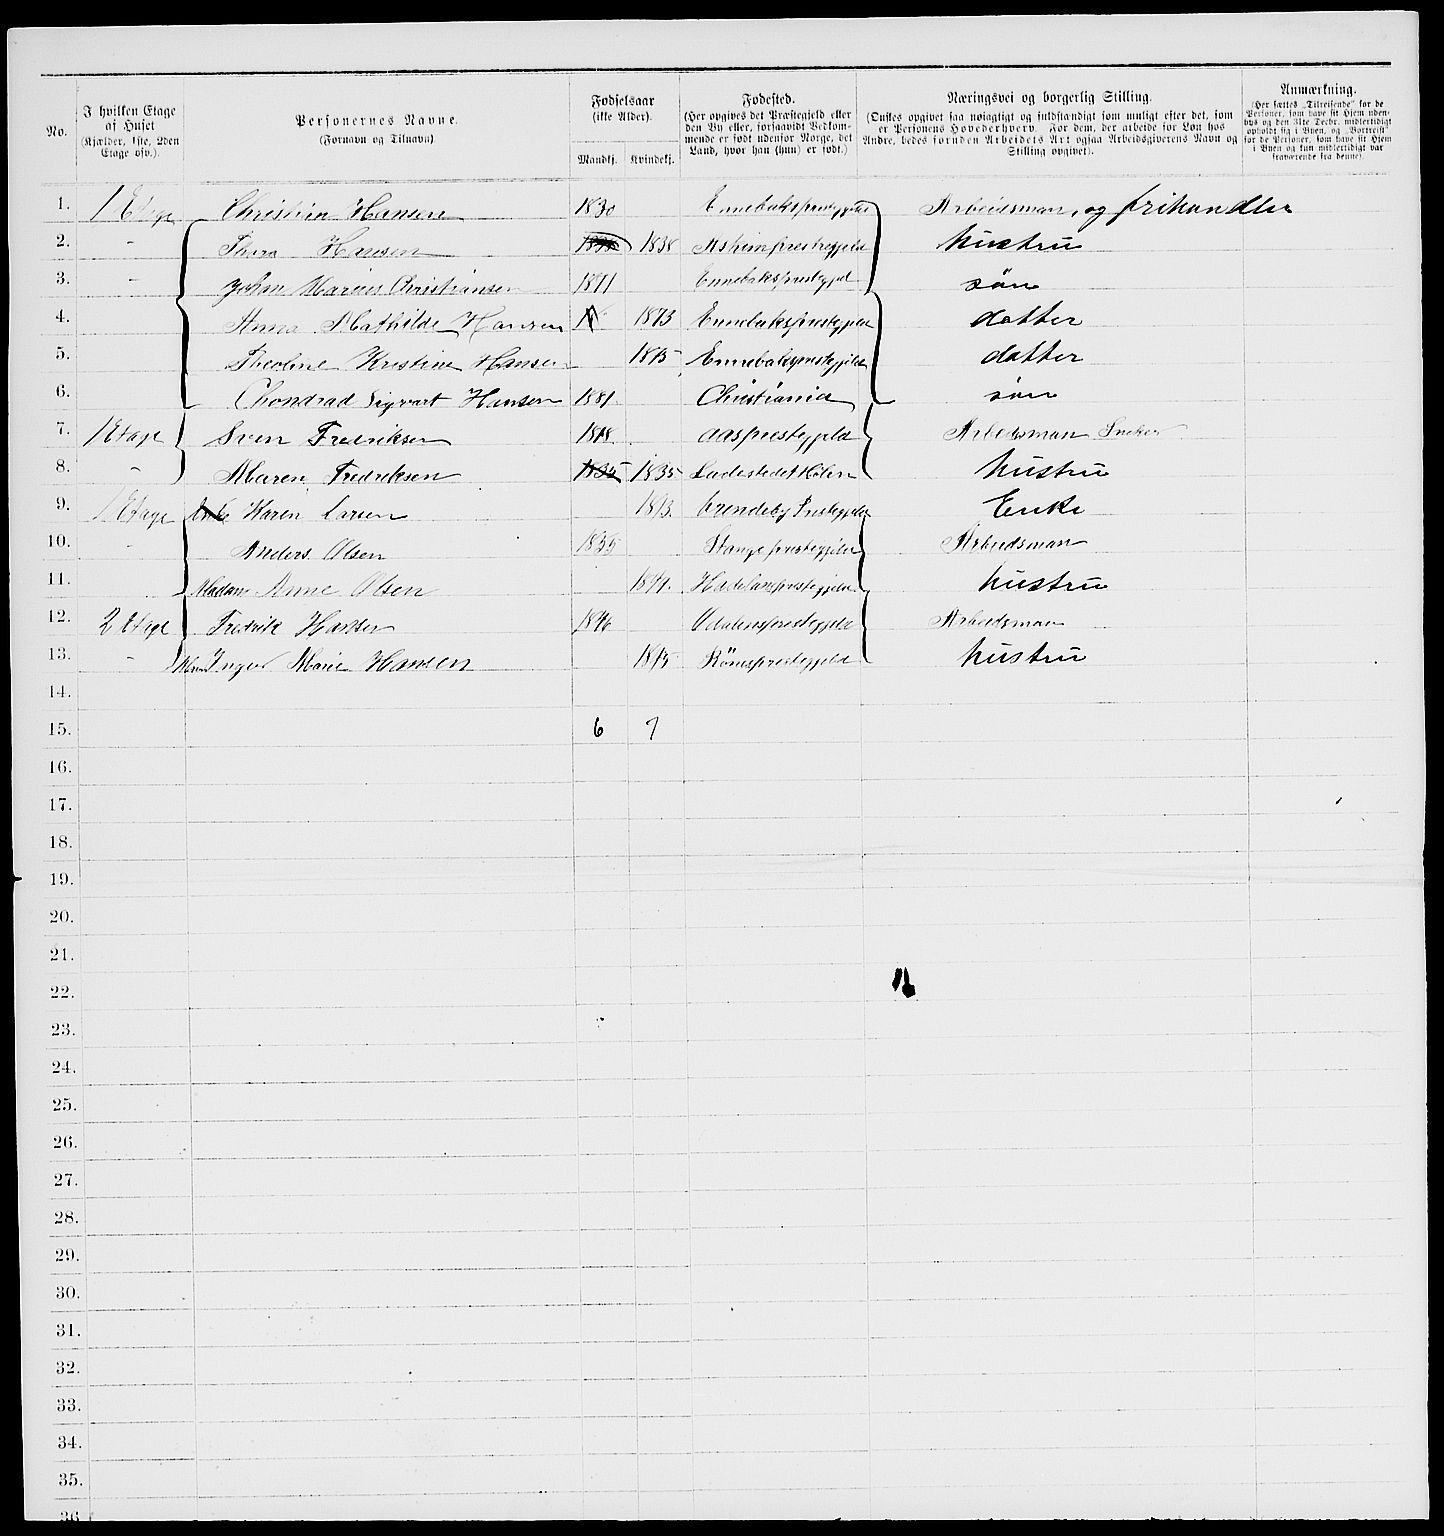 No.
I hvilken Etage af Huset (Kjælder, 1ste, 2den Etage osv.).
Personernes Navne. (Fornavn og Tilnavn)
Fødselsaar (ikke Alder).
Mandkj. Kvindekj.
Fødested. (Her opgives det Præstegjeld eller den By eller, forsaavidt Vedkommende er født udenfor Norge, det Land, hvor han (hun) er født.)
Næringsvei og borgerlig Stilling. (Ønskes opgivet saa nøiagtigt og fuldstændigt som muligt efter det, som er Personens Hovederhverv. For dem, der arbeide for Løn hos Andre, bedes foruden Arbeidets Art ogsaa Arbeidsgiverens Navn og Stilling opgivet).
Anmærkning. (Her sættes „Tilreisende“ for de Personer, som have sit Hjem udenbys og den 31te Decbr. midlertidigt opholdt sig i Byen, og „Bortreist“ for de Personer, som have sit Hjem i Byen og kun midlertidigt var fraværende fra denne).
1. 1 Etage Christian Hansen 1830 Ennebaksprestegjeld Arbeidsman, og frihandler
2. - Thora Hansen 1838 1838 Askimprestegjeld hustru
3. - Johan Marius Christiansen 1871 Ennebaksprestegjel søn
4. Anna Mathilde Hansen 1873 Ennebaksprestegjeld datter
5. Theoline Kristine Hansen 1875 Ennebaksprestegjeld datter
6. Chondrad Sigvart Hansen 1881 Christiania søn
7. 1 Etage Sven Fredriksen aasprestegjeld Arbeidsman
8. - Maren Fredriksen 1835 1835 Ladestedet Hølen hustru
9. 1 Etage Enke Karen Larsen Prestegjeld Enke
10. - Anders Olsen 1835 Stangeprestegjeld Arbeidsman
11. Madam Anne Olsen Hadelansprestegjeld hustru
12. 2 Etage Fredrik Hansen 1846 Arbeidsman
13. - Inger Marie Hansen hustru
14.
15. 6 7
16.
17.
18.
19.
20.
21.
22.
23.
24.
25.
26.
27.
28.
29.
30.
31.
32.
33.
34.
35.
36